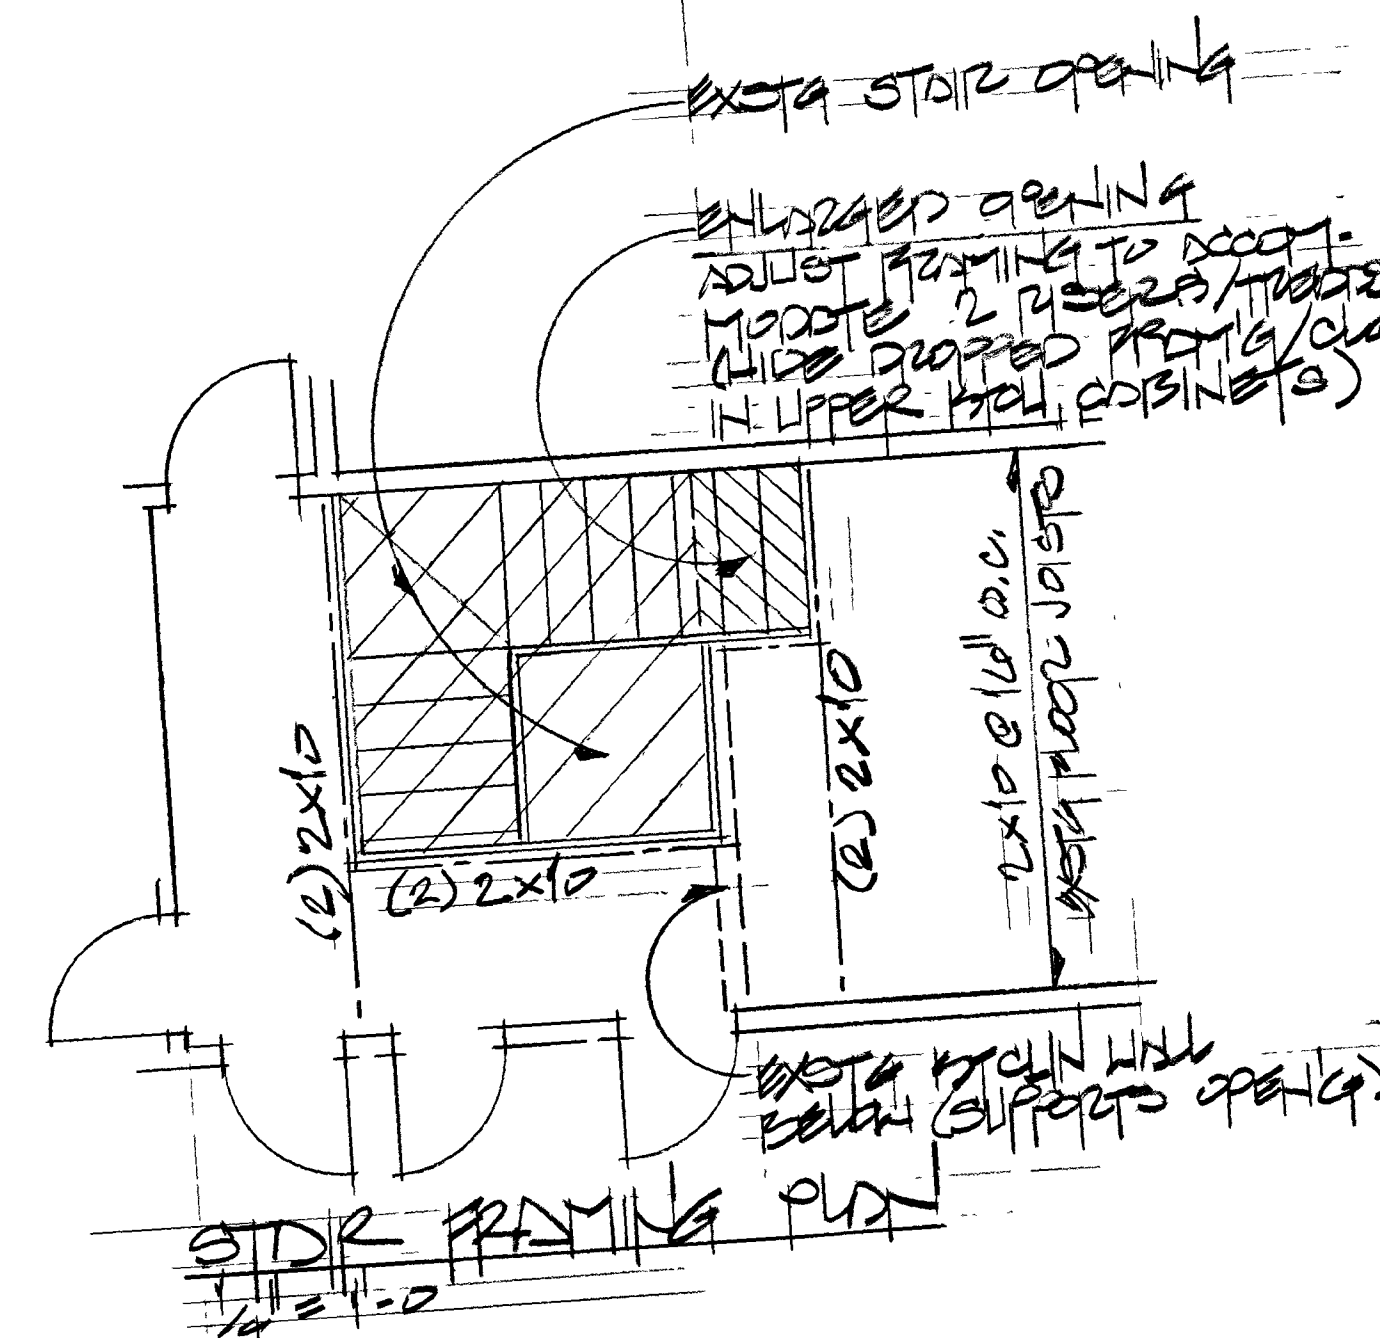 EXSTG STAIR OPENING
ENLARGED OPENING
ADJUST FRAMING TO ACCOM-
MODATE 2 RISERS/TREADS
(HIDE DROPPED FRAM'G/
IN UPPER KTCH CABINETS)
2x10 @ 16" o.c.
EXSTG FLOOR JOISTS
(2) 2x10
(2) 2x10
(2) 2x10
EXSTG KTCHN WALL
BELOW (SUPPORTS OPEN'G)
STAIR FRAMING PLAN
1/4" = 1'-0